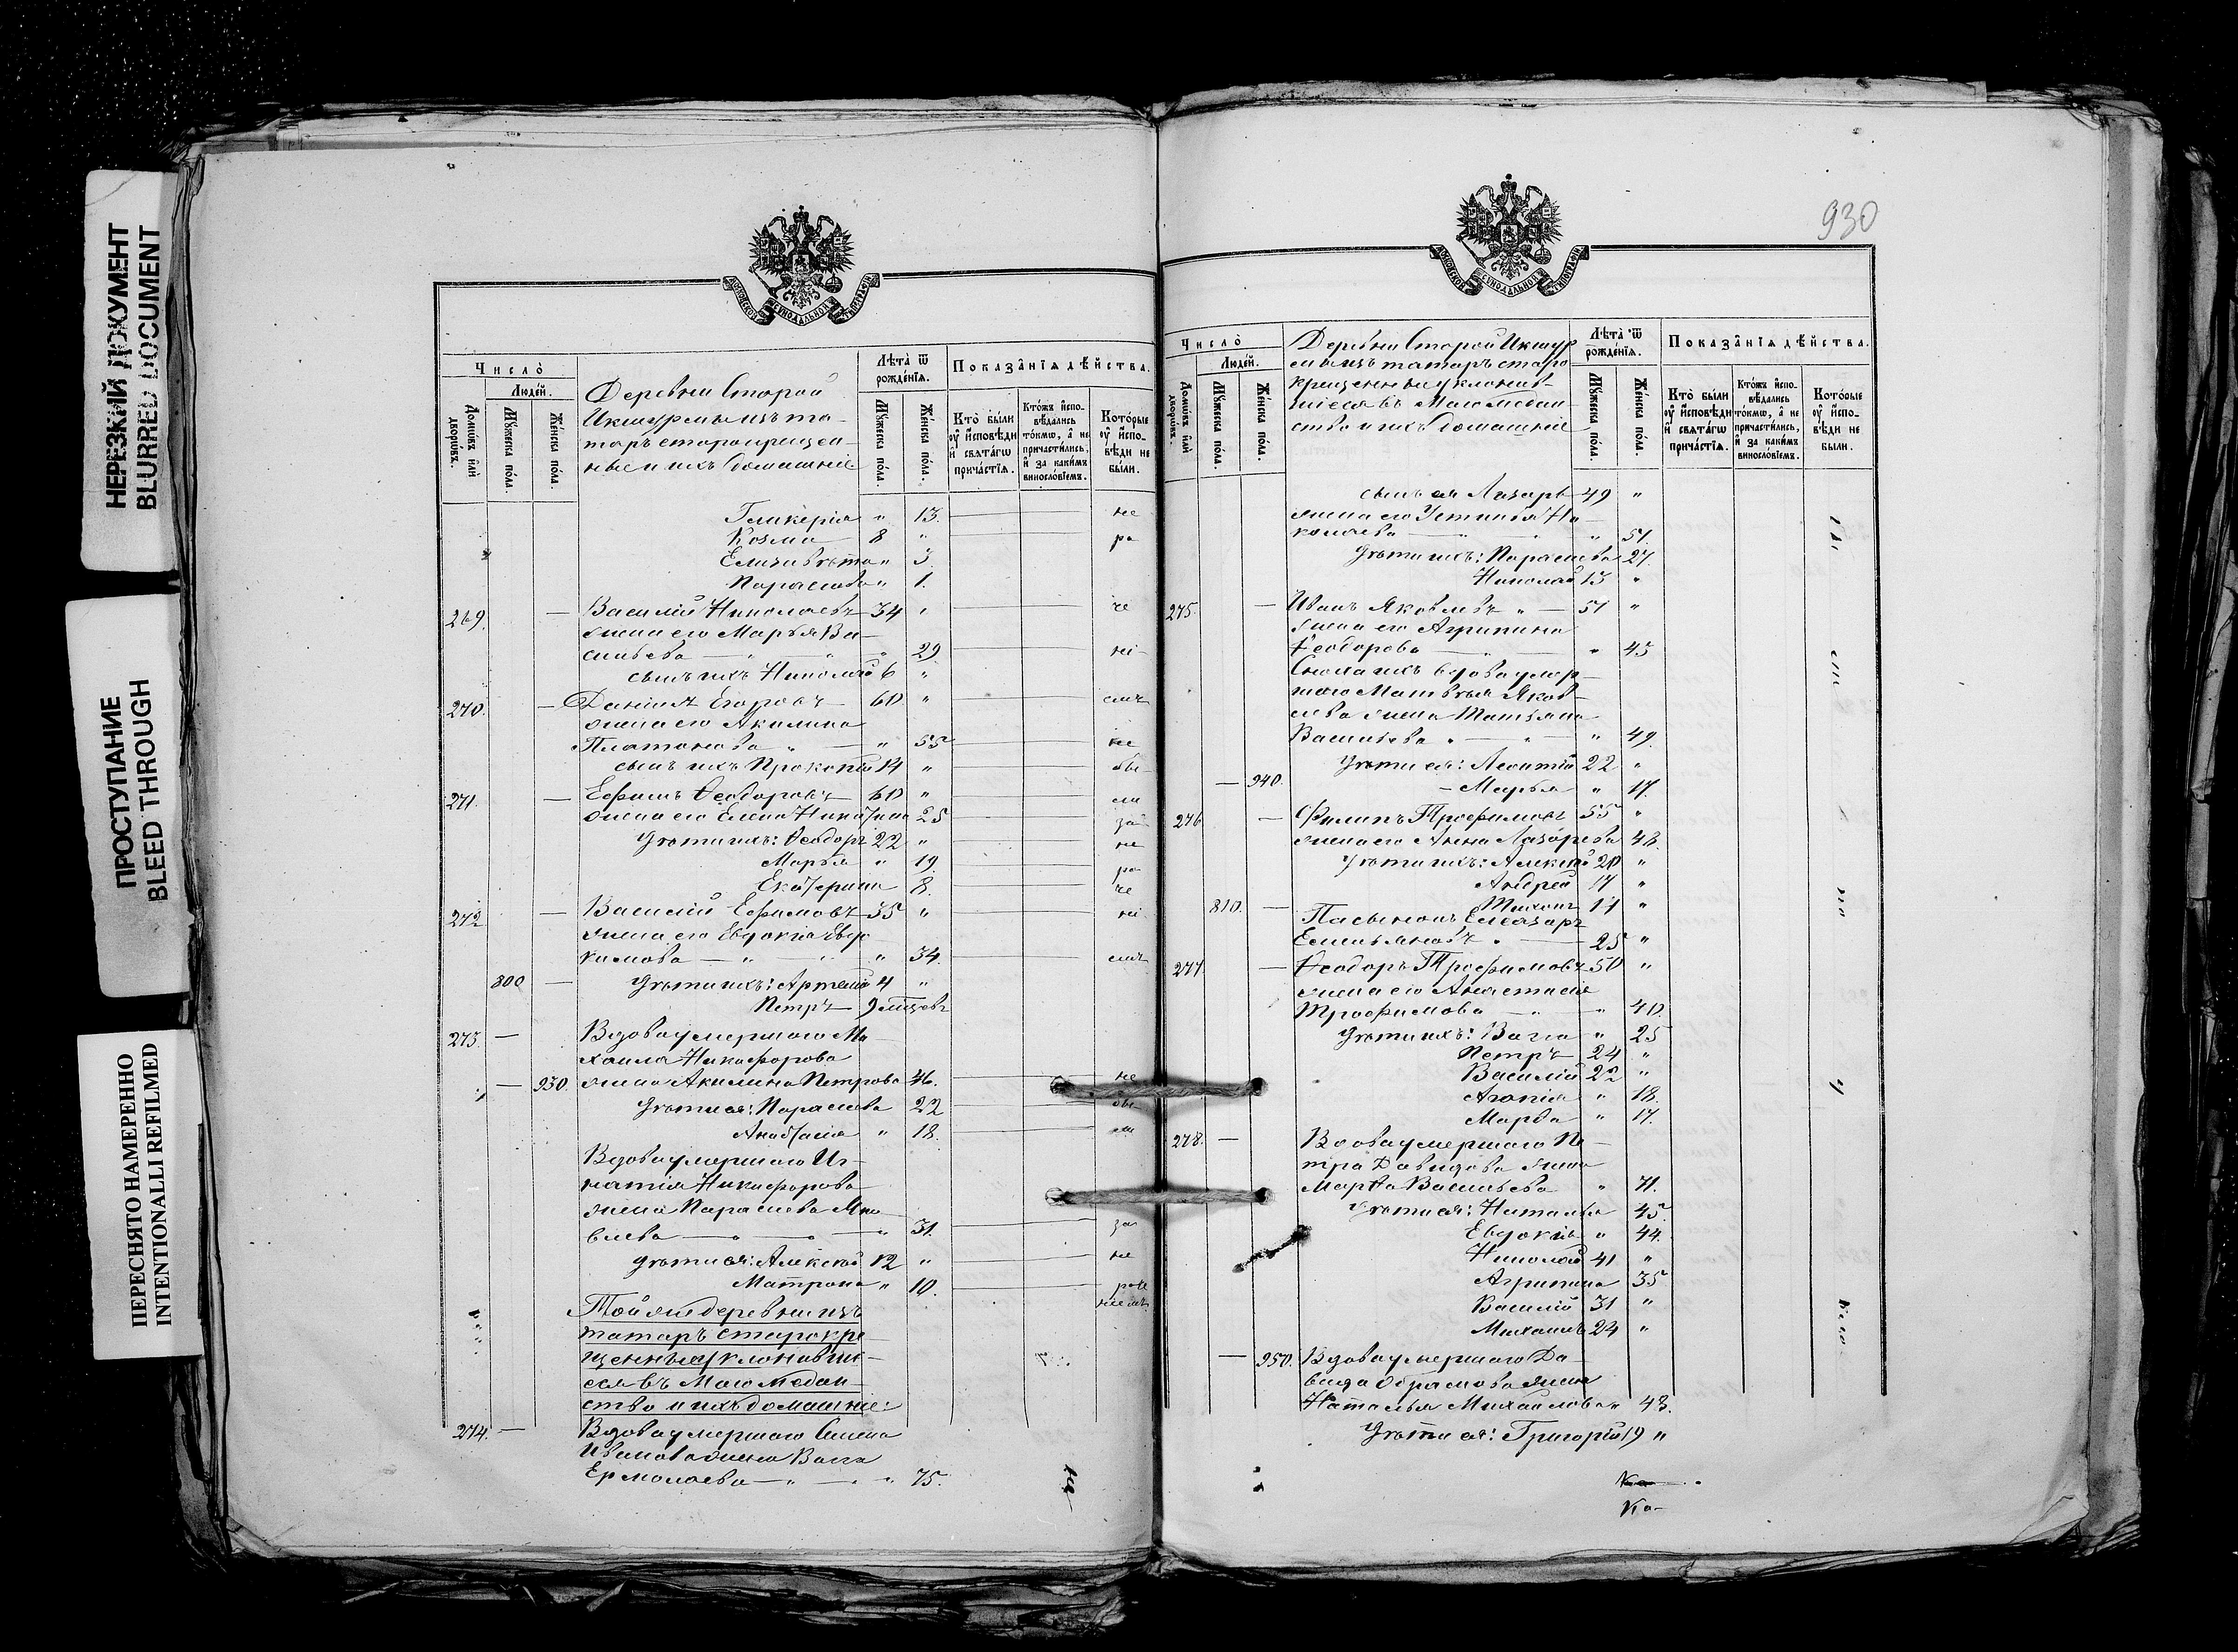 НЕРЕЗКИЙ ДОКУМЕНТ
BLURRED DOCUMENT
ПРОСТУПАНИЕ
BLEED THROUGH
ПЕРЕСНЯТО НАМЕРЕННО
INTENTIONALLI REFILMED
МОСКОВСКОЙ СѴНОДАЛЬНОЙ ТИПОГРАФІИ
Число̀
Людей.
Домѡвъ или дворѡвъ.
Мꙋжеска пола.
Женска пола.
Деревни Старой
Икшурмы изъ та-
таръ старокрещен-
ные и ихъ домашніе
Лѣта ѿ рожденїѧ.
Мꙋжеска пола.
Женска пола.
Показанїѧ дѣйства.
Кто были оу исповѣди и свѧтагѡ причастїѧ.
Ктожъ исповѣдались токмѡ, а не причастились, и за какимъ винословїемъ.
Которые оу исповѣди не были.
Гликерія " 13. не
Козма 8 " ра
Елизавѣта " 3.
Параскева " 1.
269. Василій Николаевъ 34 " че
жена его Марья Ва-
сильева " 29. ні
сынъ ихъ Николай 6 "
270. Даніилъ Егоровъ 60 " емъ
жена его Акилина
Платонова " " 55 не
сынъ ихъ Прокопій 14 " бы-
271. Ефимъ Ѳеодоровъ 60 " ли
жена его Елена Никитина 25 за
дѣти ихъ: Ѳеодоръ 22 " не
Марья " 19. ра
Екатерина 8. че
272 Василій Ефимовъ 35 " ні
жена его Евдокія Евдо-
кимова " " 34. емъ
800 дѣти ихъ: Артемій 4 "
Петръ 9 мѣсцовъ
273. Вдова умершаго Ми-
хаила Никифорова
930. жена Акилина Петрова 46. не
дѣти ея: Параскева 22 бы-
Анастасія " 18. ли
Вдова умершаго Иг-
натія Никифорова
жена Параскева Яко-
влева " 31. за
дѣти ея: Алексѣй 12 " не
Матрона " 10. раче
ніемъ
Той же деревни изъ
татаръ старокре-
щенныя уклонивші-
еся въ Магометан-
ство и ихъ домашніе:
274. Вдова умершаго Семена
Иванова жена Васса
Ермолаева " " 75.
930
МОСКОВСКОЙ СѴНОДАЛЬНОЙ ТИПОГРАФІИ
Число̀
Людей.
Домѡвъ или дворѡвъ.
Мꙋжеска пола.
Женска пола.
Деревни Старой Икшур
мы изъ татаръ старо
крещенные уклонив-
шіеся въ Магометан-
ство и ихъ домашніе
Лѣта ѿ рожденїѧ.
Мꙋжеска пола.
Женска пола.
Показанїѧ дѣйства.
Кто были оу исповѣди и свѧтагѡ причастїѧ.
Ктожъ исповѣдались токмѡ, а не причастились, и за какимъ винословїемъ.
Которые оу исповѣди не были.
сынъ ея Лазарь 49 "
жена его Устинія Ни-
колаева " " 51.
дѣти ихъ: Параскева 27.
Николай 13 "
275. Иванъ Яковлевъ " 51 "
жена его Агрипина
Ѳеодорова " 45
Сноха ихъ вдова умер-
шаго Матвѣя Яков-
лева жена Татьяна
Васильева " " 49.
дѣти ея: Леонтій 22 "
940. Марья " 17.
276 Филипъ Трофимовъ 55 "
жена его Анна Лазарева 48.
дѣти ихъ: Алексѣй 20 "
Андрей 17 "
810. Тихонъ 11 "
Пасынокъ Елеазаръ
Емельяновъ " 25 "
277. Ѳеодоръ Трофимовъ 50 "
жена его Анастасія
Трофимова " 40.
дѣти ихъ: Васса " 25
Петръ 24 "
Василій 22 "
Агапія " 18.
Марѳа " 17.
278. Вдова умершаго Пе-
тра Давидова жена
Марѳа Васильева " 71.
дѣти ея: Наталья 45.
Евдокія " 44.
Николай 41 "
Агрипина 35
Василій 31 "
Михаилъ 24 "
950. Вдова умершаго Да-
вида Абрамова жена
Наталья Михайлова " 43.
дѣти ея: Григорій 19 "
Ка-